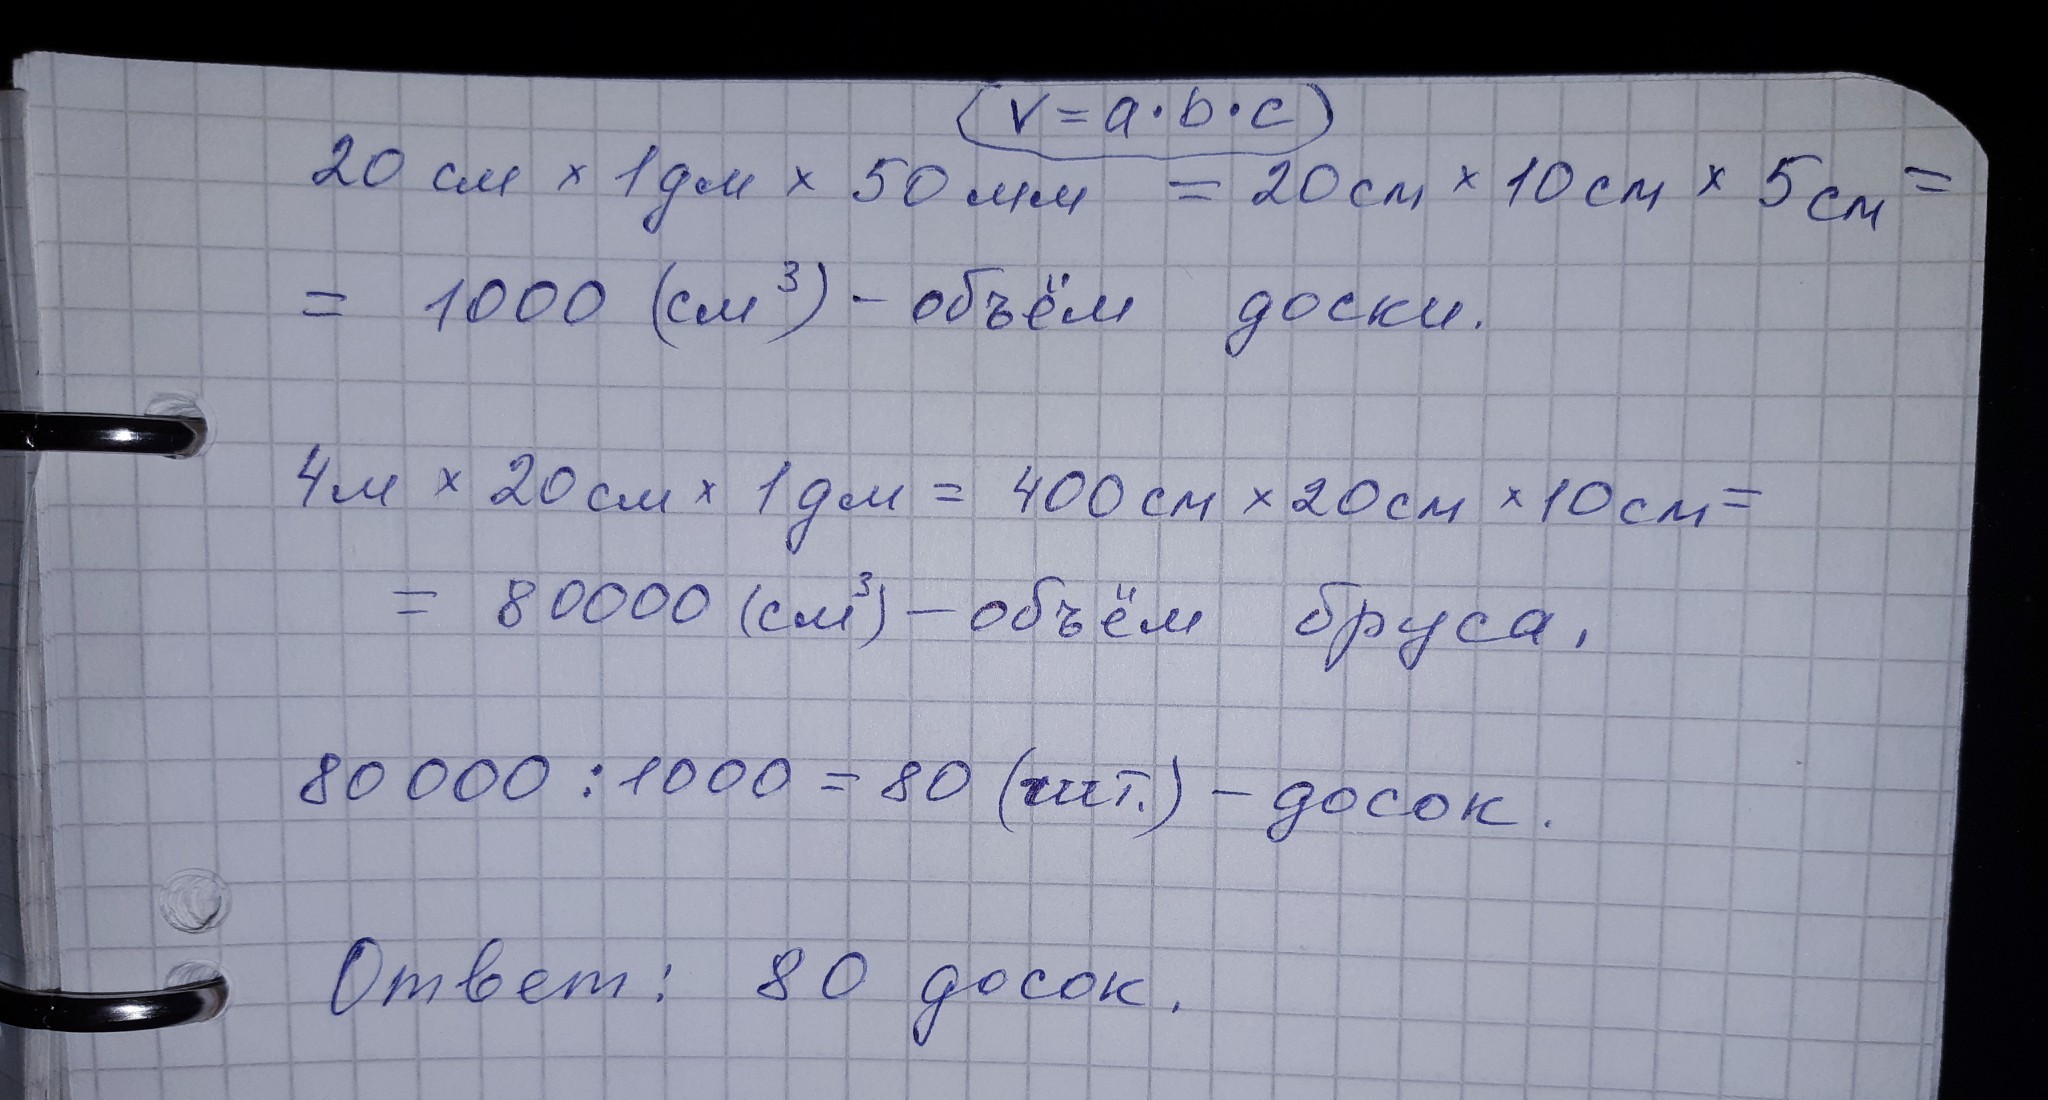 (V = a · b · c)
20 см × 1 дм × 50 мм = 20 см × 10 см × 5 см =
= 1000 (см³) – объём доски.
4 м × 20 см × 1 дм = 400 см × 20 см × 10 см =
= 80000 (см³) – объём бруса.
80 000 : 1000 = 80 (шт.) – досок.
Ответ: 80 досок.